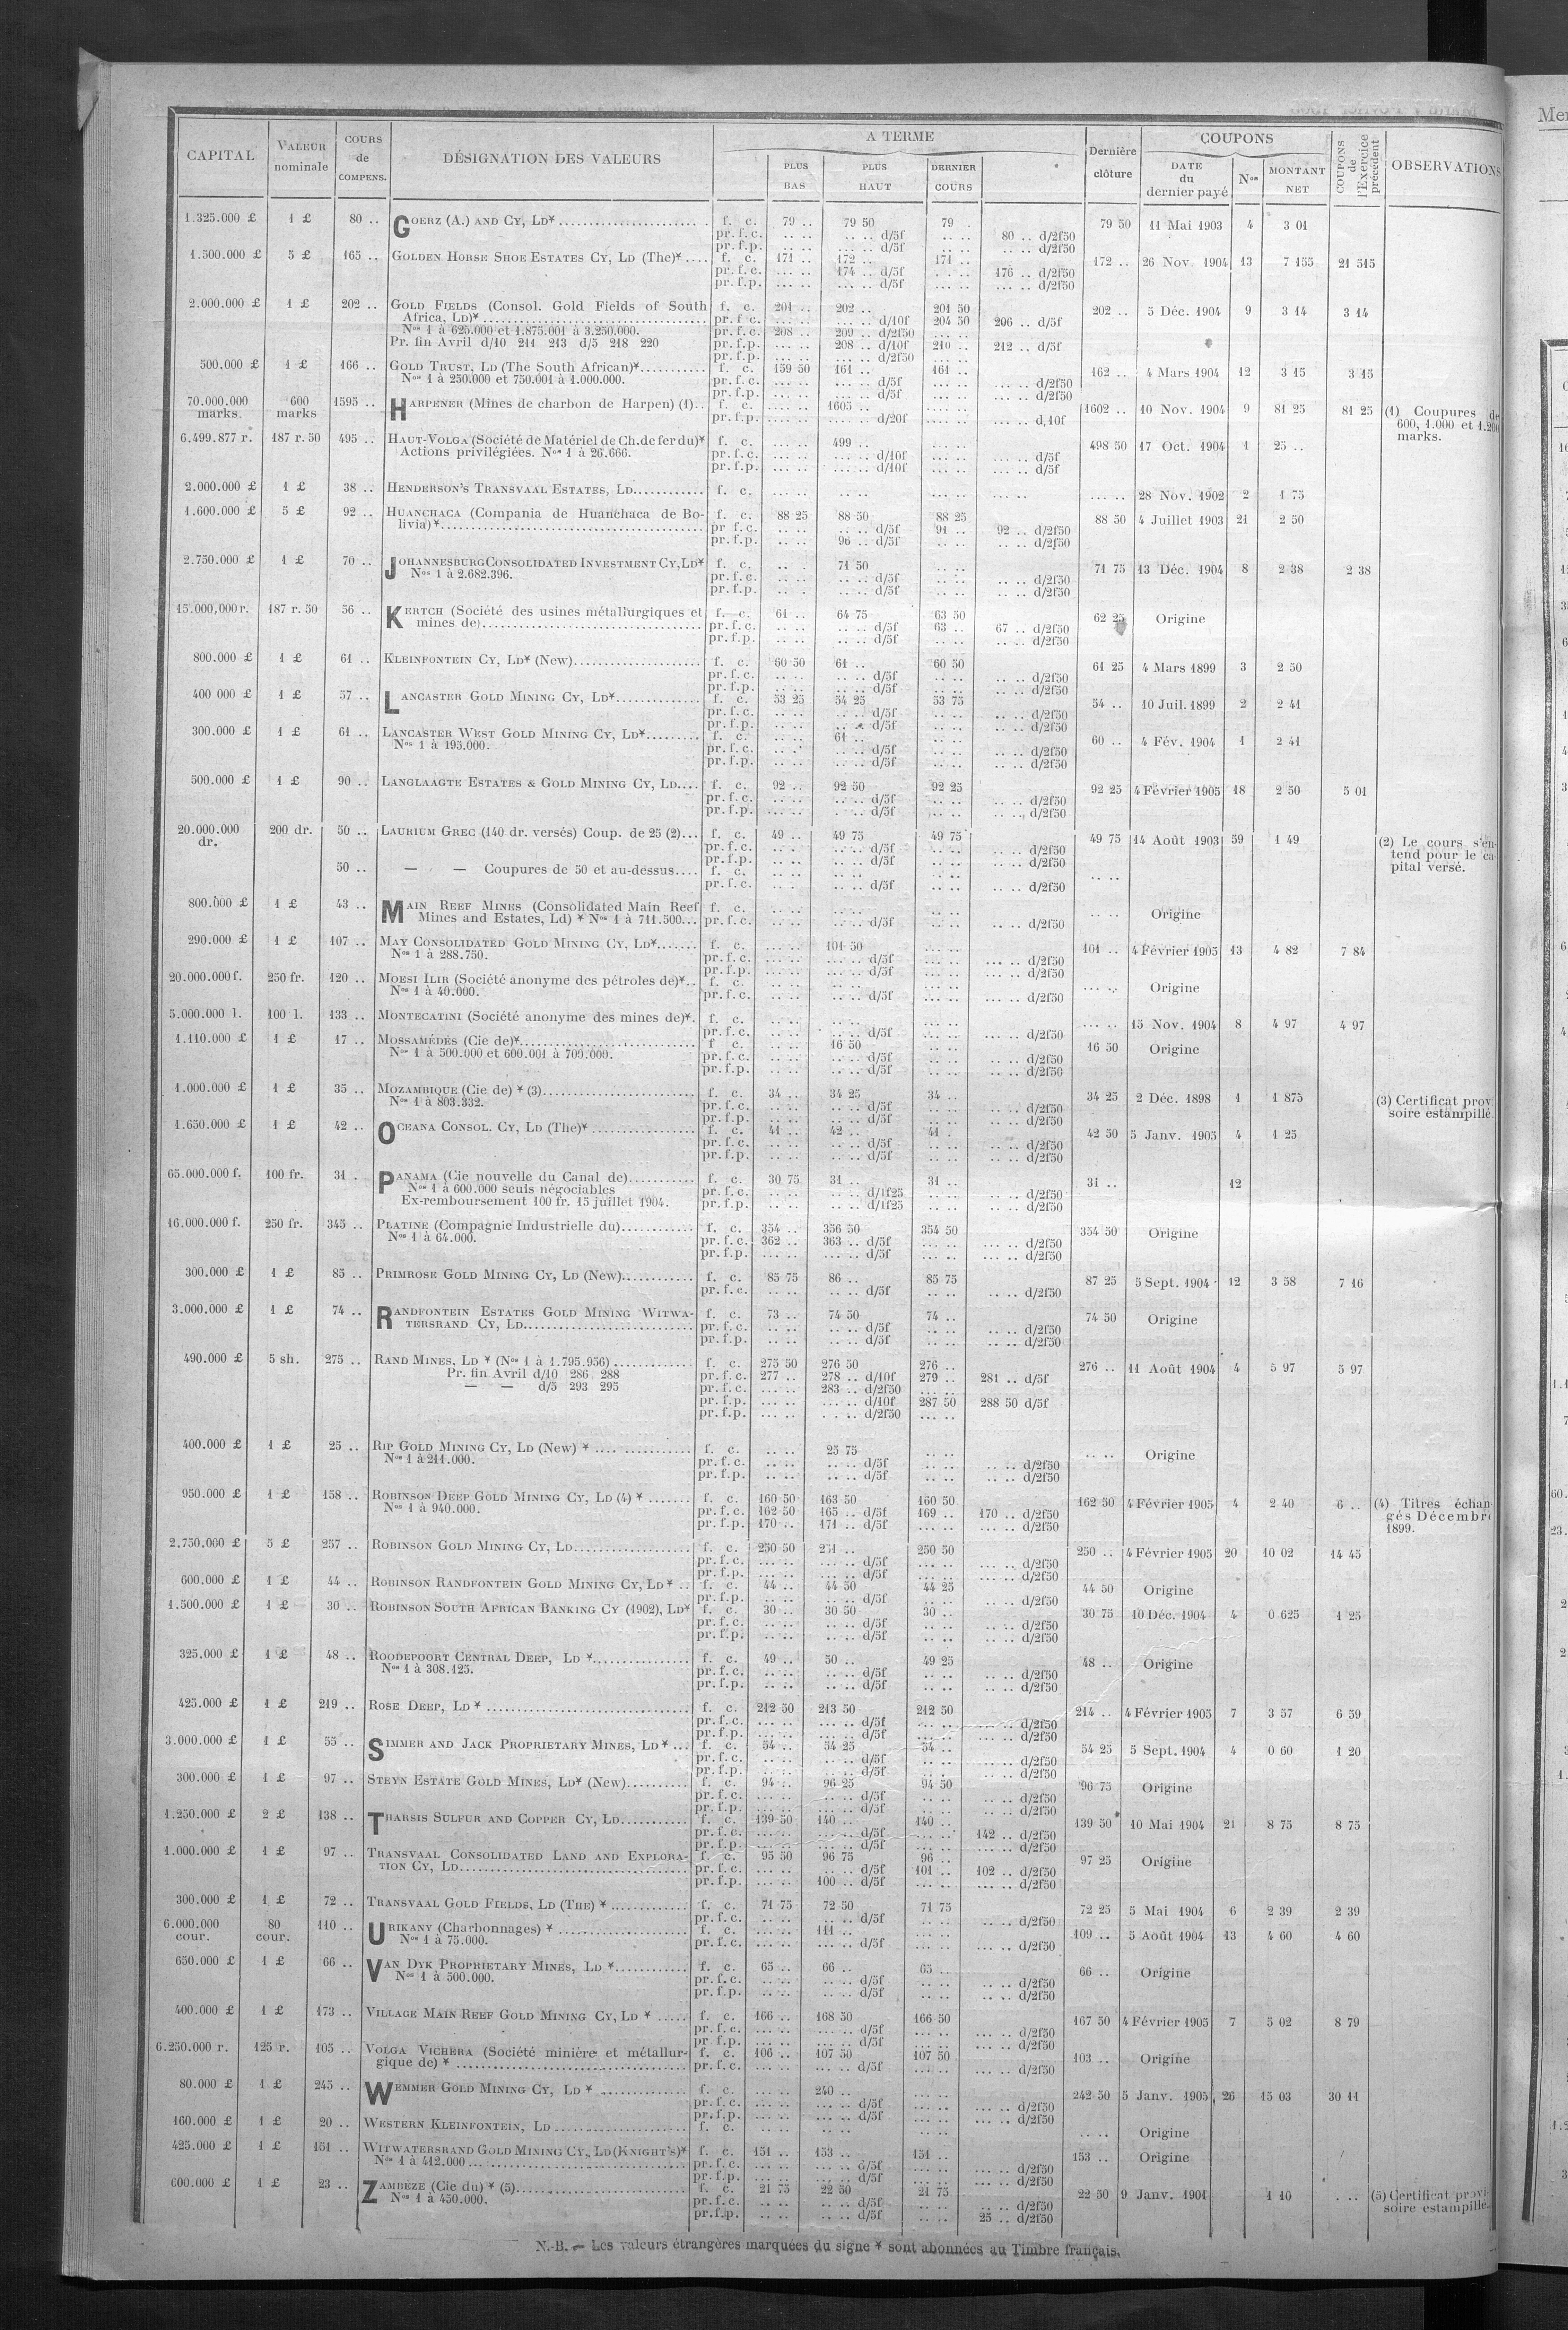 CAPITAL | VALEUR nominale | COURS de COMPENS. | DÉSIGNATION DES VALEURS | A TERME | PLUS BAS | PLUS HAUT | DERNIER COURS | Dernière clôture | COUPONS | DATE du dernier payé | Nos | MONTANT NET | COUPONS de l'Exercice précédent | OBSERVATIONS
1.325.000 £ 1 £ 80 .. GOERZ (A.) AND CY, LD* f. c. 79 .. 79 50 79 . 79 50 11 Mai 1903 4 3 01
pr. f. c. .. .. .. .. d/5f .. .. 80 .. d/2f50
pr. f. p. .. .. .. .. d/5f .. .. .. .. d/2f50
1.500.000 £ 5 £ 165 .. GOLDEN HORSE SHOE ESTATES CY, LD (The)* f. c. 171 .. 172 .. 171 .. 172 .. 26 Nov. 1904 13 7 155 21 515
pr. f. c. ... .. 174 .. d/5f 176 .. d/2f50
pr. f. p. ... .. ... .. d/5f ... .. d/2f50
2.000.000 £ 1 £ 202 .. GOLD FIELDS (Consol. Gold Fields of South f. c. 201 .. 202 .. 201 50 202 .. 5 Déc. 1904 9 3 14 3 14
Africa, LD)* pr. f. c. ... .. ... .. d/10f 204 50 206 .. d/5f
Nos 1 à 625.000 et 1.875.001 à 3.250.000. pr. f. c. 208 .. 209 .. d/2f50 ... ..
Pr. fin Avril d/10 211 213 d/5 218 220 pr. f. p. ... .. 208 .. d/10f 210 .. 212 .. d/5f
pr. f. p. ... .. ... .. d/2f50 ... ..
500.000 £ 1 £ 166 .. GOLD TRUST, LD (The South African)* f. c. 159 50 161 .. 161 .. 162 .. 4 Mars 1904 12 3 15 3 15
Nos 1 à 250.000 et 750.001 à 1.000.000. pr. f. c. ... .. ... .. d/5f ... .. ... .. d/2f50
pr. f. p. ... .. ... .. d/5f ... .. ... .. d/2f50
70.000.000 marks. 600 marks 1595 .. HARPENER (Mines de charbon de Harpen) (1).. f. c. .... .. 1605 .. .... .. 1602 .. 10 Nov. 1904 9 81 25 81 25 (1) Coupures de 600, 1.000 et 1.200 marks.
pr. f. p. .... .. .... .. d/20f .... .. .... .. d,10f
6.499.877 r. 187 r. 50 495 .. HAUT-VOLGA (Société de Matériel de Ch. de fer du)* f. c. ... .. 499 .. ... .. 498 50 17 Oct. 1904 1 25 ..
Actions privilégiées. Nos 1 à 26.666. pr. f. c. ... .. ... .. d/10f ... .. ... .. d/5f
pr. f. p. ... .. ... .. d/10f ... .. ... .. d/5f
2.000.000 £ 1 £ 38 .. HENDERSON'S TRANSVAAL ESTATES, LD f. c. ... .. .. .. ... .. ... .. 28 Nov. 1902 2 1 75
1.600.000 £ 5 £ 92 .. HUANCHACA (Compania de Huanchaca de Bo- f. c. 88 25 88 50 88 25 88 50 4 Juillet 1903 21 2 50
livia)* pr f. c. .. .. .. .. d/5f 91 .. 92 .. d/2f50
pr. f. p. .. .. 96 .. d/5f .. .. .. .. d/2f50
2.750.000 £ 1 £ 70 .. JOHANNESBURG CONSOLIDATED INVESTMENT CY, LD* f. c. .. . 71 50 .. .. 71 75 13 Déc. 1904 8 2 38 2 38
Nos 1 à 2.682.396. pr. f. c. .. .. .. .. d/5f .. .. .. .. d/2f50
pr. f. p. .. .. .. .. d/5f .. .. .. .. d/2f50
15.000,000 r. 187 r. 50 56 .. KERTCH (Société des usines métallurgiques et f. c. 61 .. 64 75 63 50 62 25 Origine
mines de) pr. f. c. .. .. .. .. d/5f 63 .. 67 .. d/2f50
pr. f. p. .. .. .. .. d/5f .. .. .. .. d/2f50
800.000 £ 1 £ 61 .. KLEINFONTEIN CY, LD* (New) f. c. 60 50 61 .. 60 50 61 25 4 Mars 1899 3 2 50
pr. f. c. .. .. .. .. d/5f .. .. .. .. d/2f50
pr. f. p. .. .. .. .. d/5f .. .. .. .. d/2f50
400 000 £ 1 £ 57 .. LANCASTER GOLD MINING CY, LD* f. c. 53 25 54 25 53 75 54 .. 10 Juil. 1899 2 2 41
pr. f. c. .. .. .. .. d/5f .. .. .. .. d/2f50
pr. f. p. .. .. .. .. d/5f .. .. .. .. d/2f50
300.000 £ 1 £ 61 .. LANCASTER WEST GOLD MINING CY, LD* f. c. .. .. 61 .. .. .. 60 .. 4 Fév. 1904 1 2 41
Nos 1 à 195.000. pr. f. c. .. .. .. .. d/5f .. .. .. .. d/2f50
pr. f. p. .. .. .. .. d/5f .. .. .. .. d/2f50
500.000 £ 1 £ 90 .. LANGLAAGTE ESTATES & GOLD MINING CY, LD f. c. 92 .. 92 50 92 25 92 25 4 Février 1905 18 2 50 5 01
pr. f. c. .. .. .. .. d/5f .. .. .. .. d/2f50
pr. f. p. .. .. . .. d/5f .. .. .. .. d/2f50
20.000.000 dr. 200 dr. 50 .. LAURIUM GREC (140 dr. versés) Coup. de 25 (2) f. c. 49 .. 49 75 49 75 49 75 14 Août 1903 59 1 49 (2) Le cours s'entend pour le capital versé.
pr. f. c. .. .. .. .. d/5f .. .. .. .. d/2f50
pr. f. p. .. .. .. .. d/5f .. .. .. .. d/2f50
50 .. — — Coupures de 50 et au-dessus f. c. .. .. .. .. .. .. .. ..
pr. f. c. .. . .. .. d/5f .. .. .. .. d/2f50
800.000 £ 1 £ 43 .. MAIN REEF MINES (Consolidated Main Reef f. c. .. .. .. .. .. .. .. .. Origine
Mines and Estates, Ld) * Nos 1 à 711.500 pr. f. c. .. .. .. .. d/5f .. .. .. .. d/2f50
290.000 £ 1 £ 107 .. MAY CONSOLIDATED GOLD MINING CY, LD* f. c. ... .. 101 50 ... .. 101 .. 4 Février 1905 13 4 82 7 84
Nos 1 à 288.750. pr. f. c. ... .. ... .. d/5f ... .. ... .. d/2f50
pr. f. p. ... .. ... .. d/5f ... .. ... .. d/2f50
20.000.000 f. 250 fr. 120 .. MOESI ILIR (Société anonyme des pétroles de)* f. c. .. .. .. .. .. .. ... .. Origine
Nos 1 à 40.000. pr. f. c. .. .. .. .. d/5f .. .. ... .. d/2f50
5.000.000 l. 100 l. 133 .. MONTECATINI (Société anonyme des mines de)*. f. c. .. .. .. .. .. .. ... .. 15 Nov. 1904 8 4 97 4 97
pr. f. c. .. .. .. .. d/5f .. .. ... .. d/2f50
1.110.000 £ 1 £ 17 .. MOSSAMÉDÈS (Cie de)* f c. .. .. 16 50 .. .. 16 50 Origine
Nos 1 à 500.000 et 600.001 à 700.000. pr. f. c. .. .. .. .. d/5f .. .. .. .. d/2f50
pr. f. p. .. .. .. .. d/5f .. .. .. .. d/2f50
1.000.000 £ 1 £ 35 .. MOZAMBIQUE (Cie de) * (3) f. c. 34 .. 34 25 34 .. 34 25 2 Déc. 1898 1 1 875 (3) Certificat provisoire estampillé.
Nos 1 à 803.332. pr. f. c. .. .. .. .. d/5f .. .. .. .. d/2f50
pr. f. p. .. .. .. .. d/5f .. .. .. .. d/2f50
1.650.000 £ 1 £ 42 .. OCEANA CONSOL. CY, LD (The)* f. c. 41 .. 42 .. 41 . 42 50 5 Janv. 1905 4 1 25
pr. f. c. .. .. .. .. d/5f .. .. .. .. d/2f50
pr. f. p. .. .. .. .. d/5f .. .. .. .. d/2f50
65.000.000 f. 100 fr. 31 . PANAMA (Cie nouvelle du Canal de) f. c. 30 75 31 .. 31 .. 31 .. 12
Nos 1 à 600.000 seuls négociables pr. f. c. .. .. .. .. d/1f25 .. .. .. .. d/2f50
Ex-remboursement 100 fr. 15 juillet 1904. pr. f. p. .. .. .. .. d/1f25 .. .. .. .. d/2f50
16.000.000 f. 250 fr. 345 .. PLATINE (Compagnie Industrielle du) f. c. 354 .. 356 50 354 50 354 50 Origine
Nos 1 à 64.000. pr. f. c. 362 .. 363 .. d/5f ... .. ... .. d/2f50
pr. f. p. ... .. ... .. d/5f ... .. ... .. d/2f50
300.000 £ 1 £ 85 .. PRIMROSE GOLD MINING CY, LD (New) f. c. 85 75 86 .. 85 75 87 25 5 Sept. 1904 12 3 58 7 16
pr. f. c. .. .. .. .. d/5f .. .. .. .. d/2f50
3.000.000 £ 1 £ 74 .. RANDFONTEIN ESTATES GOLD MINING WITWA- f. c. 73 .. 74 50 74 .. 74 50 Origine
TERSRAND CY, LD pr. f. c. .. .. .. .. d/5f .. .. .. .. d/2f50
pr. f. p. .. .. .. .. d/5f .. .. .. .. d/2f50
490.000 £ 5 sh. 275 .. RAND MINES, LD * (Nos 1 à 1.795.956) f. c. 275 50 276 50 276 .. 276 .. 11 Août 1904 4 5 97 5 97
Pr. fin Avril d/10 286 288 pr. f. c. 277 .. 278 .. d/10f 279 .. 281 .. d/5f
— — d/5 293 295 pr. f. c. ... .. 283 .. d/2f50 ... ..
pr. f. p. ... .. ... .. d/10f 287 50 288 50 d/5f
pr. f. p. ... .. ... .. d/2f50 ... ..
400.000 £ 1 £ 25 .. RIP GOLD MINING CY, LD (New) * f. c. .. .. 25 75 .. .. .. .. Origine
Nos 1 à 211.000. pr. f. c. .. .. .. .. d/5f .. .. .. .. d/2f50
pr. f. p. .. .. .. .. d/5f .. .. .. .. d/2f50
950.000 £ 1 £ 158 .. ROBINSON DEEP GOLD MINING CY, LD (4) * f. c. 160 50 163 50 160 50 162 50 4 Février 1905 4 2 40 6 .. (4) Titres échangés Décembre 1899.
Nos 1 à 940.000. pr. f. c. 162 50 165 .. d/5f 169 .. 170 .. d/2f50
pr. f. p. 170 .. 171 .. d/5f ... .. ... .. d/2f50
2.750.000 £ 5 £ 257 .. ROBINSON GOLD MINING CY, LD f. c. 250 50 251 .. 250 50 250 .. 4 Février 1905 20 10 02 14 45
pr. f. c. ... .. ... .. d/5f ... .. ... .. d/2f50
pr. f. p. ... .. ... .. d/5f ... .. ... .. d/2f50
600.000 £ 1 £ 44 .. ROBINSON RANDFONTEIN GOLD MINING CY, LD * f. c. 44 .. 44 50 44 25 44 50 Origine
pr. f. p. .. .. .. .. d/5f .. .. .. .. d/2f50
1.500.000 £ 1 £ 30 .. ROBINSON SOUTH AFRICAN BANKING CY (1902), LD* f. c. 30 .. 30 50 30 .. 30 75 10 Déc. 1904 4 0 625 1 25
pr. f. c. .. .. .. .. d/5f .. .. .. .. d/2f50
pr. f. p. .. .. .. .. d/5f .. .. .. .. d/2f50
325.000 £ 1 £ 48 .. ROODEPOORT CENTRAL DEEP, LD * f. c. 49 .. 50 .. 49 25 48 .. Origine
Nos 1 à 308.125. pr. f. c. .. .. .. .. d/5f .. .. .. .. d/2f50
pr. f. p. .. .. .. .. d/5f .. .. .. .. d/2f50
425.000 £ 1 £ 219 .. ROSE DEEP, LD * f. c. 212 50 213 50 212 50 214 .. 4 Février 1905 7 3 57 6 59
pr. f. c. ... .. ... .. d/5f ... .. ... .. d/2f50
pr. f. p. ... .. ... .. d/5f ... .. ... .. d/2f50
3.000.000 £ 1 £ 55 .. SIMMER AND JACK PROPRIETARY MINES, LD * f. c. 54 .. 54 25 54 .. 54 25 5 Sept. 1904 4 0 60 1 20
pr. f. c. .. .. .. .. d/5f .. .. .. .. d/2f50
pr. f. p. .. .. .. .. d/5f .. .. .. .. d/2f50
300.000 £ 1 £ 97 .. STEYN ESTATE GOLD MINES, LD* (New) f. c. 94 .. 96 25 94 50 96 75 Origine
pr. f. c. .. .. .. .. d/5f .. .. .. .. d/2f50
pr. f. p. .. .. .. .. d/5f .. .. .. .. d/2f50
1.250.000 £ 2 £ 138 .. THARSIS SULFUR AND COPPER CY, LD f. c. 139 50 140 .. 140 .. 139 50 10 Mai 1904 21 8 75 8 75
pr. f. c. ... .. ... .. d/5f ... .. 142 .. d/2f50
pr. f. p. ... .. ... .. d/5f ... .. ... .. d/2f50
1.000.000 £ 1 £ 97 .. TRANSVAAL CONSOLIDATED LAND AND EXPLORA- f. c. 95 50 96 75 96 .. 97 25 Origine
TION CY, LD pr. f. c. ... .. .. .. d/5f 101 .. 102 .. d/2f50
pr. f. p. ... .. 100 .. d/5f ... .. ... .. d/2f50
300.000 £ 1 £ 72 .. TRANSVAAL GOLD FIELDS, LD (THE) * f. c. 71 75 72 50 71 75 72 25 5 Mai 1904 6 2 39 2 39
pr. f. c. .. .. .. .. d/5f .. .. .. .. d/2f50
6.000.000 cour. 80 cour. 110 .. URIKANY (Charbonnages) * f. c. ... .. 111 .. ... .. 109 .. 5 Août 1904 13 4 60 4 60
Nos 1 à 75.000. pr. f. c. ... .. ... .. d/5f ... .. ... .. d/2f50
650.000 £ 1 £ 66 .. VAN DYK PROPRIETARY MINES, LD * f. c. 65 .. 66 .. 65 .. 66 .. Origine
Nos 1 à 500.000. pr. f. c. .. .. .. .. d/5f .. .. .. .. d/2f50
pr. f. p. .. .. .. .. d/5f .. .. .. .. d/2f50
400.000 £ 1 £ 173 .. VILLAGE MAIN REEF GOLD MINING CY, LD * f. c. 166 .. 168 50 166 50 167 50 4 Février 1905 7 5 02 8 79
pr. f. c. ... .. ... .. d/5f ... .. ... .. d/2f50
pr f. p. ... .. ... .. d/5f ... .. ... .. d/2f50
6.250.000 r. 125 r. 105 .. VOLGA VICHERA (Société minière et métallur- f. c. 106 .. 107 50 107 50 103 .. Origine
gique de) * pr. f. c. ... .. ... .. d/5f ... .. ... .. d/2f50
80.000 £ 1 £ 245 .. WEMMER GOLD MINING CY, LD * f. c. ... .. 240 .. ... .. 242 50 5 Janv. 1905 26 15 03 30 11
pr. f. c. ... .. ... .. d/5f ... .. ... .. d/2f50
pr. f. p. ... .. ... .. d/5f ... .. ... .. d/2f50
160.000 £ 1 £ 20 .. WESTERN KLEINFONTEIN, LD f. c. .. .. .. .. .. .. .. .. Origine
425.000 £ 1 £ 151 .. WITWATERSRAND GOLD MINING CY, LD (KNIGHT'S)* f. c. 151 .. 153 .. 151 .. 153 .. Origine
Nos 1 à 412.000 pr. f. c. ... .. ... .. d/5f ... .. ... .. d/2f50
pr. f. p. ... .. ... .. d/5f ... .. ... .. d/2f50
600.000 £ 1 £ 23 .. ZAMBÈZE (Cie du) * (5) f. c. 21 75 22 50 21 75 22 50 9 Janv. 1901 1 10 . .. (5) Certificat provisoire estampillé.
Nos 1 à 450.000. pr. f. c. .. .. .. .. d/5f .. .. .. .. d/2f50
pr. f. p. .. .. .. .. d/5f .. .. 25 .. d/2f50
N.-B. — Les valeurs étrangères marquées du signe * sont abonnées au Timbre français.